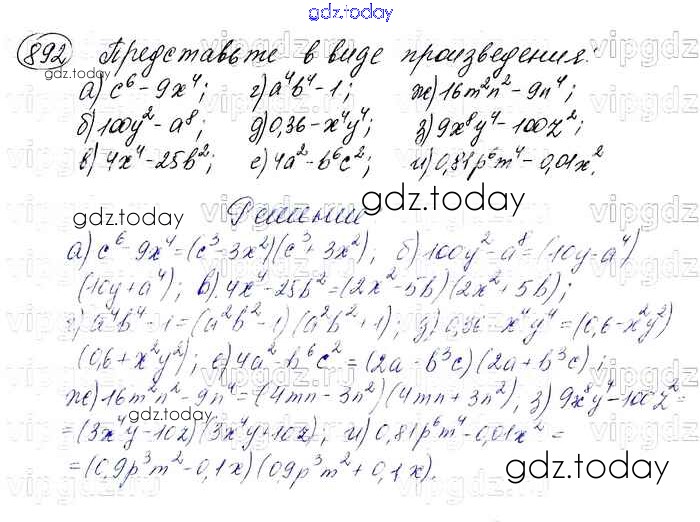 gdz.today
892 Представьте в виде произведения:
а) c⁶ - 9x⁴; г) a⁴b⁴ - 1; ж) 16m²n² - 9n⁴;
б) 100y² - a⁸; д) 0,36 - x⁴y⁴; з) 9x⁸y⁴ - 100z²;
в) 4x⁴ - 25b²; е) 4a² - b⁶c²; и) 0,81p⁶m⁴ - 0,01x².
gdz.today
gdz.today
Решение
а) c⁶ - 9x⁴ = (c³ - 3x²)(c³ + 3x²); б) 100y² - a⁸ = (10y - a⁴)
(10y + a⁴); в) 4x⁴ - 25b² = (2x² - 5b)(2x² + 5b);
г) a⁴b⁴ - 1 = (a²b² - 1)(a²b² + 1); д) 0,36 - x⁴y⁴ = (0,6 - x²y²)
(0,6 + x²y²); е) 4a² - b⁶c² = (2a - b³c)(2a + b³c)
ж) 16m²n² - 9n⁴ = (4mn - 3n²)(4mn + 3n²), з) 9x⁸y⁴ - 100z² =
gdz.today
= (3x⁴y - 10z)(3x⁴y + 10z); и) 0,81p⁶m⁴ - 0,01x² =
= (0,9p³m² - 0,1x)(0,9p³m² + 0,1x).
gdz.today